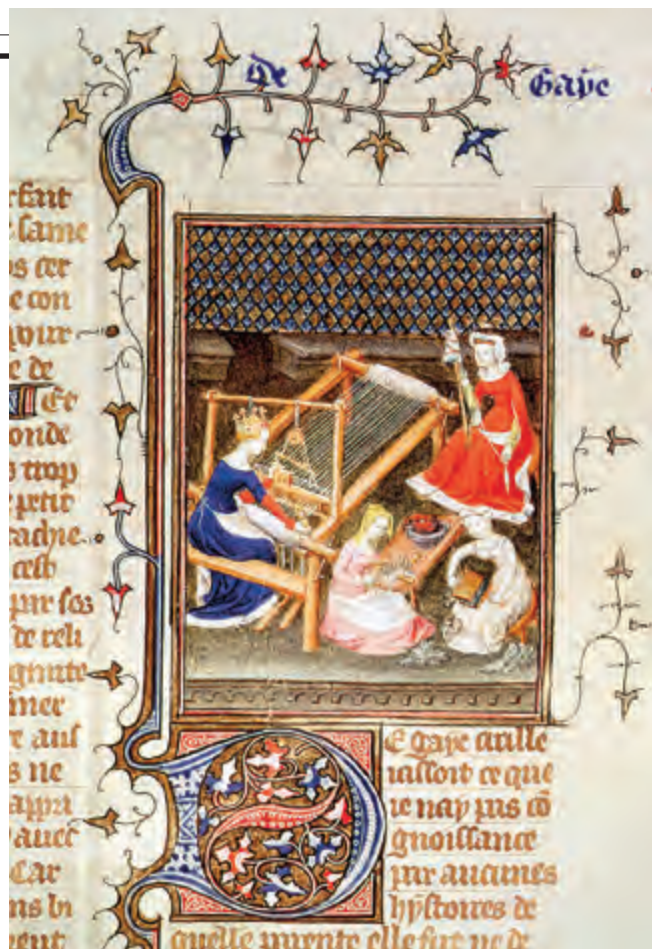 de Gaye
fait
fame
os cer
e con
e de
Et
onde
s trop
petit
cest
par ses
de reli
gnite
mer
e aus
s ne
appri
avec
Car
ns bi
ment
DE gaye cirille
laissoit ce que
ie nay pas cō
gnoissance
par aucunes
hystoires de
quelle parente elle fut ne de